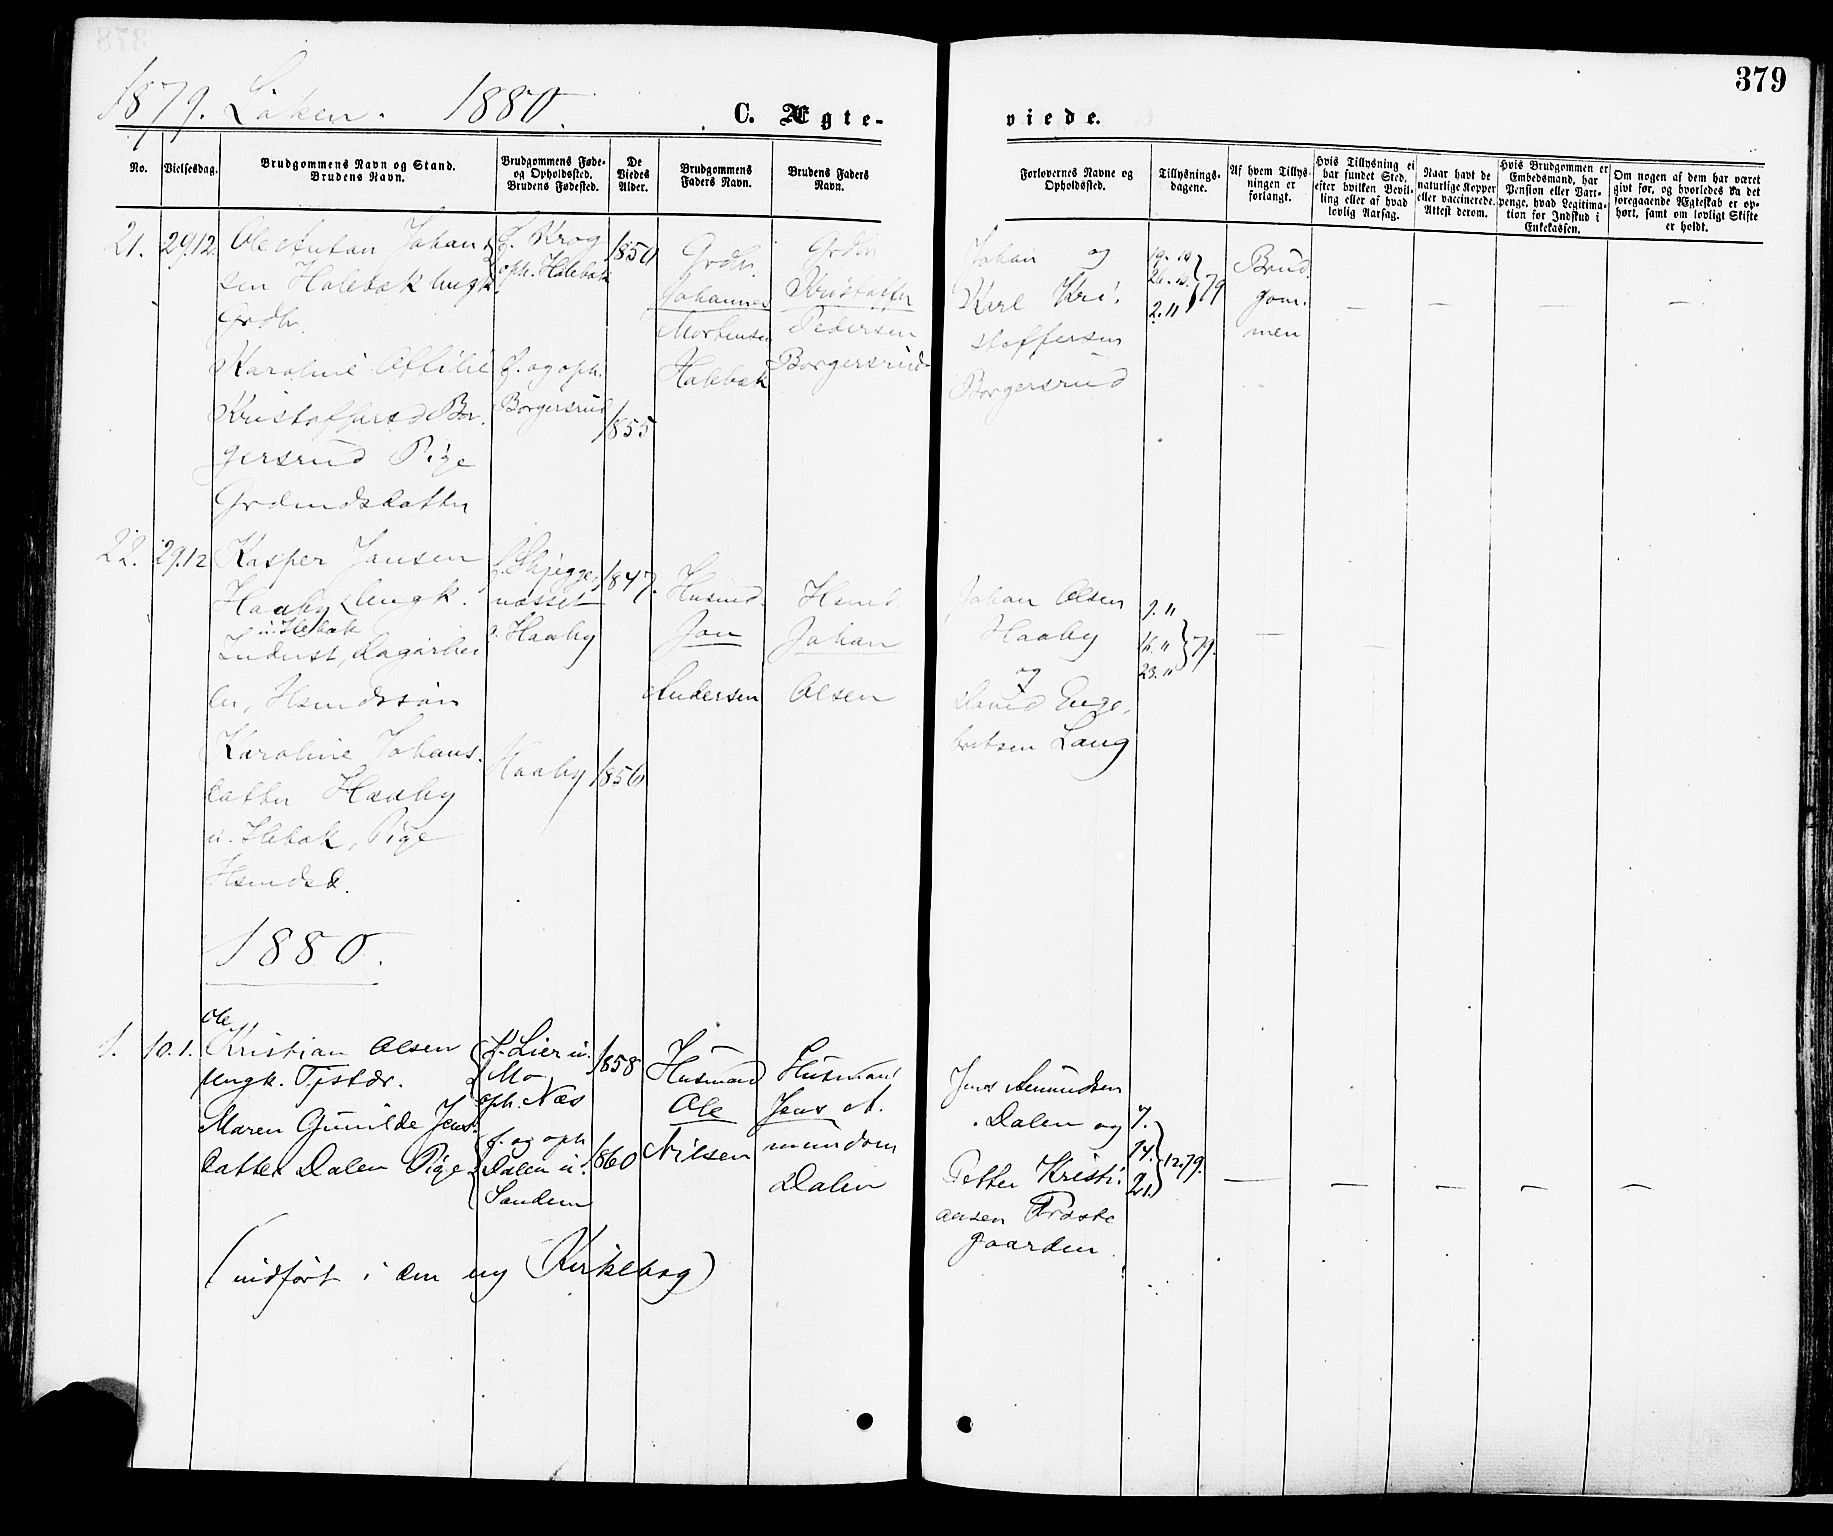 379
1879. Löken. 1880.
C. Ægte-
viede.
No.
Vielsesdag.
Brudgommens Navn og Stand.
Brudens Navn.
Brudgommens Føde-
og Opholdsted.
Brudens Fødested.
De
Viedes
Alder.
Brudgommens
Faders Navn.
Brudens Faders
Navn.
Forlovernes Navne og
Opholdsted.
Tillysnings-
dagene.
Af hvem Tillys-
ningen er
forlangt.
Hvis Tillysning ei
har fundet Sted,
efter hvilken Bevil-
ling eller af hvad
lovlig Aarsag.
Naar havt de
naturlige Kopper
eller vaccinerede.
Attest derom.
Hvis Brudgommen er
Embedsmand, har
Pension eller Vart-
penge, hvad Legitima-
tion for Indskud i
Enkekassen.
Om nogen af dem har været
gift før, og hvorledes da det
foregaaende Ægteskab er op-
hørt, samt om lovligt Skifte
er holdt.
21.
29.12.
Ole Anton Johan
sen Holebæk Ungk.
Grdbr.
Karoline Otilie
Kristoffersd Bor-
gersrud Pige
Grdmdsdatter
f. Krog
oph. Holebæk
f. og oph.
Borgersrud
1850
1855
Grdbr.
Johannes
Mortensen
Holebæk
Grdbr
Kristoffer
Pedersen
Borgersrud
Johan og
Karl Kri-
stoffersen
Borgersrud
19.10
26.10 } 79
2.11
Brud
gom-
men
22.
29.12
Kasper Jansen
Haaby Ungk.
u. Ilebæk
Inderst, Dagarbei
der, Hsmdssön
Karoline Johans-
datter Haaby
u. Ilebæk, Pige
Hsmdsd.
f. Skjegge-
næsset
o. Haaby
Haaby
1847.
1856
Husmd.
Jan
Andersen
Hsmd.
Johan
Olsen
Johan Olsen
Haaby
og
David Enge-
bretsen Lang
9.11
16.11 } 79.
23.11
1880.
1.
10.1.
Ole
Kristian Olsen
Ungk. Tjstdr.
Maren Gunilde Jens-
datter Dalen Pige
f. Lier u.
Mo
oph. Næs
f. og oph
Dalen u.
Sandem
1858
1860
Husmand
Ole
Nilsen
Husmand
Jens A-
mundsen
Dalen
Jens Amundsen
Dalen og
Petter Kristi-
ansen Præste
gaarden.
7.
14. } 12.79.
21.
(indført i den ny Kirkebog)